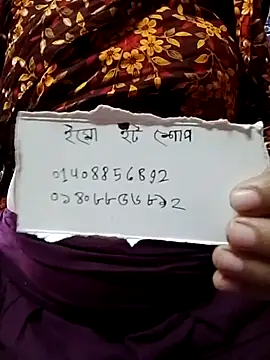 ইমো হট শোপ
01408856892
০১৪০৮৮৫৬৮৯২